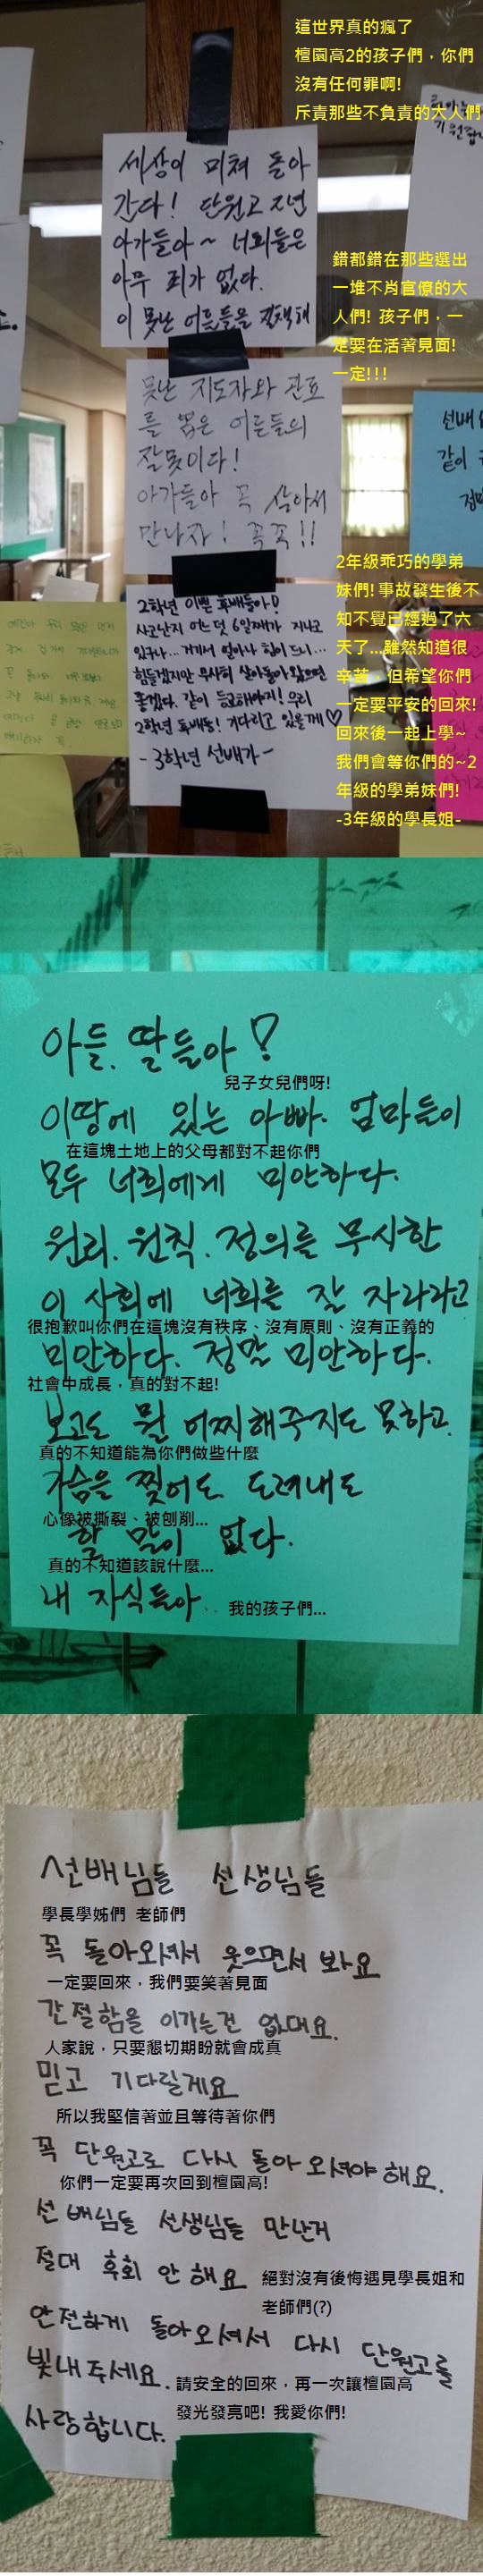 這世界真的瘋了
檀園高2的孩子們，你們
沒有任何罪啊!
斥責那些不負責的大人們
세상이 미쳐 돌아
간다! 단원고 2년
아가들아~ 너희들은
아무 죄가 없다.
이 못난 어른들을 질책해
錯都錯在那些選出
一堆不肖官僚的大
人們! 孩子們，一
定要在活著見面!
一定!!!
못난 지도자와 관료
를 뽑은 어른들의
잘못이다!
아가들아 꼭 살아서
만나자! 꼭꼭!!
선배
같이
2年級乖巧的學弟
妹們! 事故發生後不
知不覺已經過了六
天了...雖然知道很
辛苦，但希望你們
一定要平安的回來!
回來後一起上學~
我們會等你們的~2
年級的學弟妹們!
-3年級的學長姐-
2학년 이쁜 후배들아!
사고난지 어느덧 6일째가 지나고
있구나... 거기서 얼마나 힘이 드니...
힘들겠지만 무사히 살아돌아왔으면
좋겠다. 같이 등교해야지! 우리
2학년 후배들! 기다리고 있을께♡
- 3학년 선배가 -
아들. 딸들아!
兒子女兒們呀!
이땅에 있는 아빠. 엄마들이
在這塊土地上的父母都對不起你們
모두 너희에게 미안하다.
원리. 원칙. 정의를 무시한
이 사회에 너희를 잘 자라라고
很抱歉叫你們在這塊沒有秩序、沒有原則、沒有正義的
미안하다. 정말 미안하다.
社會中成長，真的對不起!
보고도 뭘 어찌해주지도 못하고.
真的不知道能為你們做些什麼
가슴을 찢어도 도려내도
心像被撕裂、被刨削...
할 말이 없다.
真的不知道該說什麼...
내 자식들아..
我的孩子們...
선배님들 선생님들
學長學姊們 老師們
꼭 돌아오셔서 웃으면서 봐요
一定要回來，我們要笑著見面
간절함을 이기는건 없대요.
人家說，只要懇切期盼就會成真
믿고 기다릴게요
所以我堅信著並且等待著你們
꼭 단원고로 다시 돌아오셔야 해요.
你們一定要再次回到檀園高!
선배님들 선생님들 만난거
절대 후회 안 해요
絕對沒有後悔遇見學長姐和
老師們(?)
안전하게 돌아오셔서 다시 단원고를
빛내주세요.
請安全的回來，再一次讓檀園高
發光發亮吧! 我愛你們!
사랑합니다.